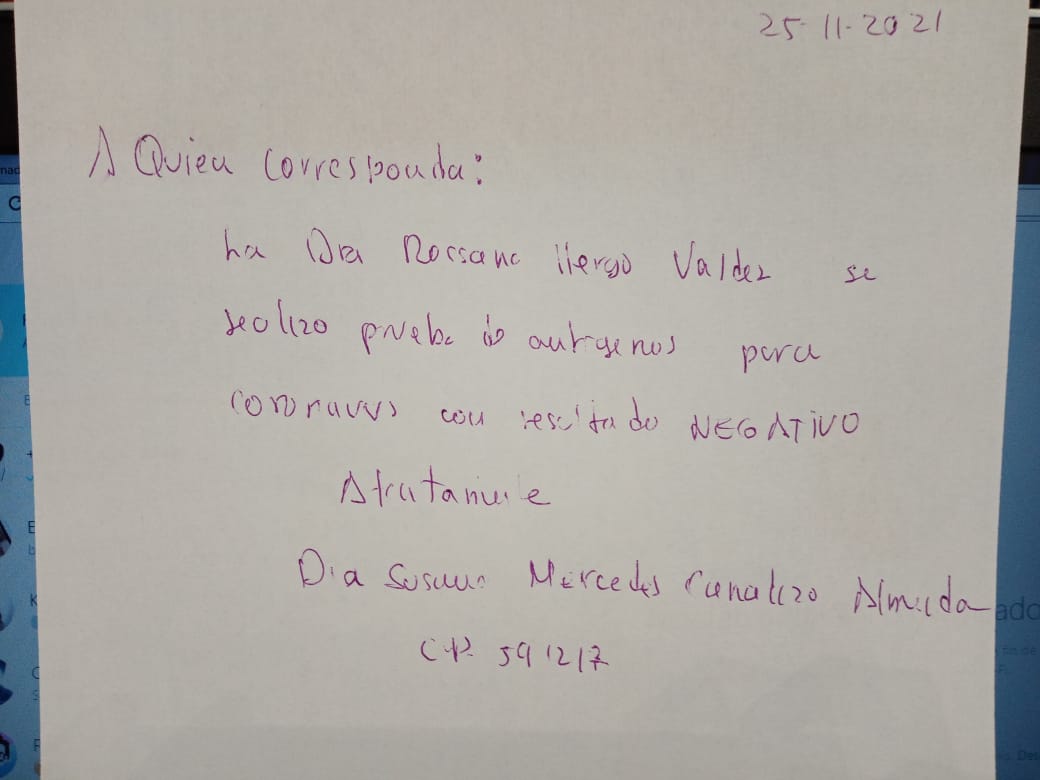 25-11-2021
A Quien corresponda:
La Dra Rossana Liergo Valdez se
realizo prueba de antigenos para
coronavirus con resultado NEGATIVO
Atentamente
Dra Susana Mercedes Canalizo Almeida
C.P. 591217